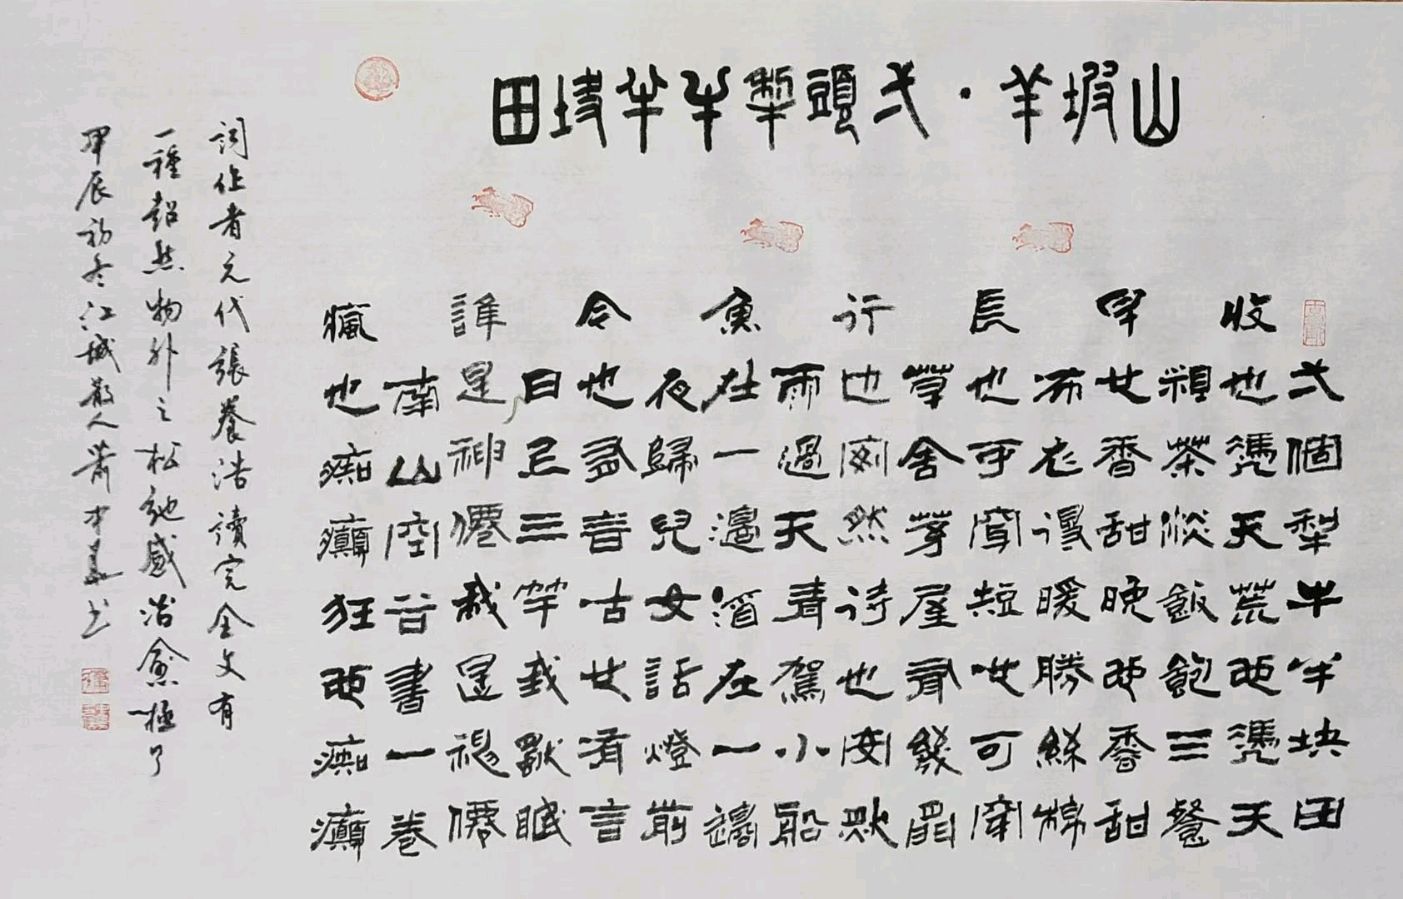 山坡羊·弌頭犂牛半塊田
弌個犂牛半块田
收也凴天荒也凴天
粗茶淡飯飽三餐
早也香甜晚也香甜
布衣得暖勝絲棉
長也可穿短也可穿
草舍茅屋有幾間
行也安然待也安然
雨過天青駕小船
魚在一邊酒在一邊
夜歸兒女話燈前
今也有言古也有言
日上三竿我獨眠
誰是神僊我是神僊
南山空谷書一卷
瘋也痴癲狂也痴癲
詞作者元代張養浩讀完全文有
一種超然物外之松弛感治愈極了
甲辰初冬江城散人蕭書